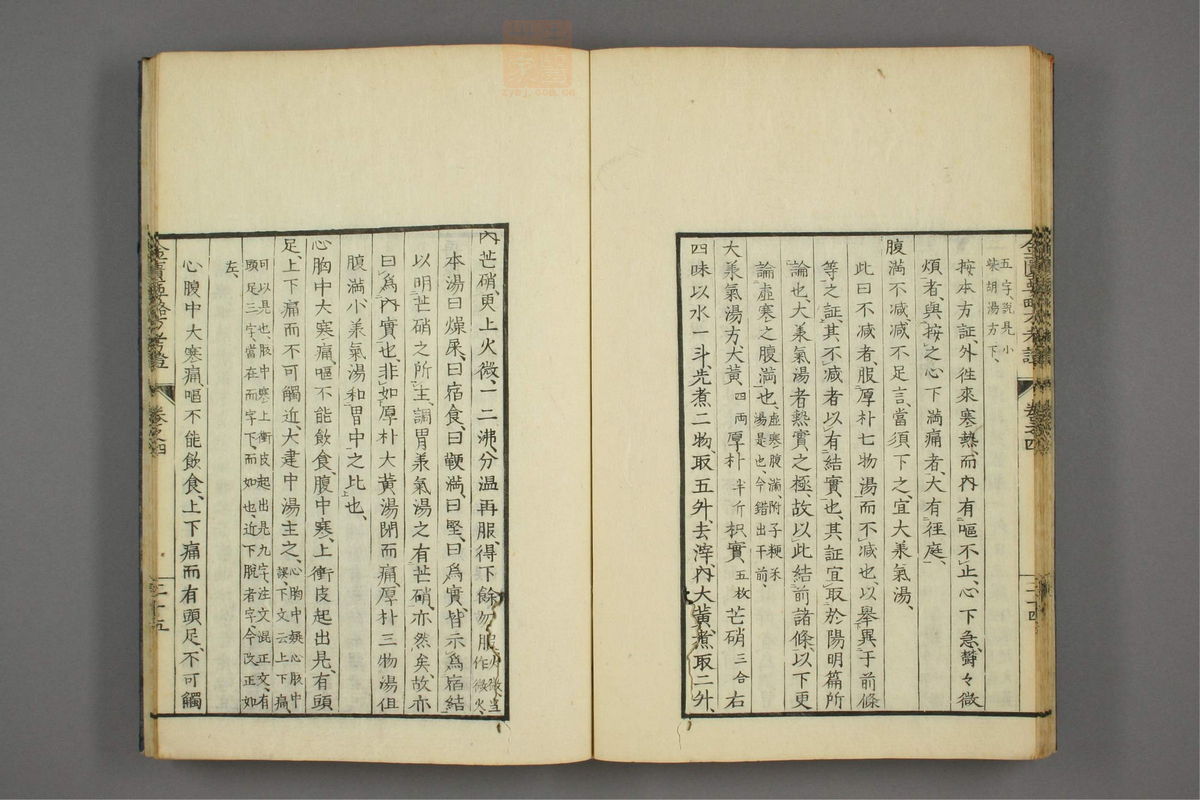 五字、說見小
柴胡湯方下、
按本方証、外往來寒熱、而內有嘔不止、心下急、欝々微
煩者、與按之心下滿痛者、大有徑庭、
腹滿不減、減不足言、當須下之、宜大承氣湯、
此曰不減者、服厚朴七物湯而不減也、以舉異于前條
等之証、其不減者以有結實也、其証宜取於陽明篇所
論也、大承氣湯者熱實之極、故以此結前諸條、以下更
論虛寒之腹滿也、虛寒腹滿、附子粳米
湯是也、今錯出于前、
大承氣湯方、大黃、四兩厚朴半斤枳實、五枚芒硝三合右
四味以水一斗、先煮二物、取五升、去滓、內大黃煮取二升、
內芒硝更上火微、一二沸、分溫再服、得下餘勿服火微當
作微火、
本湯曰燥屎、曰宿食、曰鞕滿、曰堅、曰爲實、皆示爲宿結
以明芒硝之所主、調胃承氣湯之有芒硝、亦然矣、故亦
曰爲內實也、非如厚朴大黃湯閉而痛、厚朴三物湯但
腹滿、小承氣湯和胃中之比上也、
心胸中大寒痛、嘔不能飲食、腹中寒、上衝皮起出見、有頭
足、上下痛而不可觸近、大建中湯主之、心胸中疑心腹中
誤、下文云上下痛、
可以見也、腹中寒上衝皮起出見九字、注文混正文、有
頭足三字、當在而字下、而如也、近下脫者字、今改正如
左、
心腹中大寒痛、嘔不能飲食、上下痛而有頭足、不可觸
卷之四
三十四
卷之四
三十五